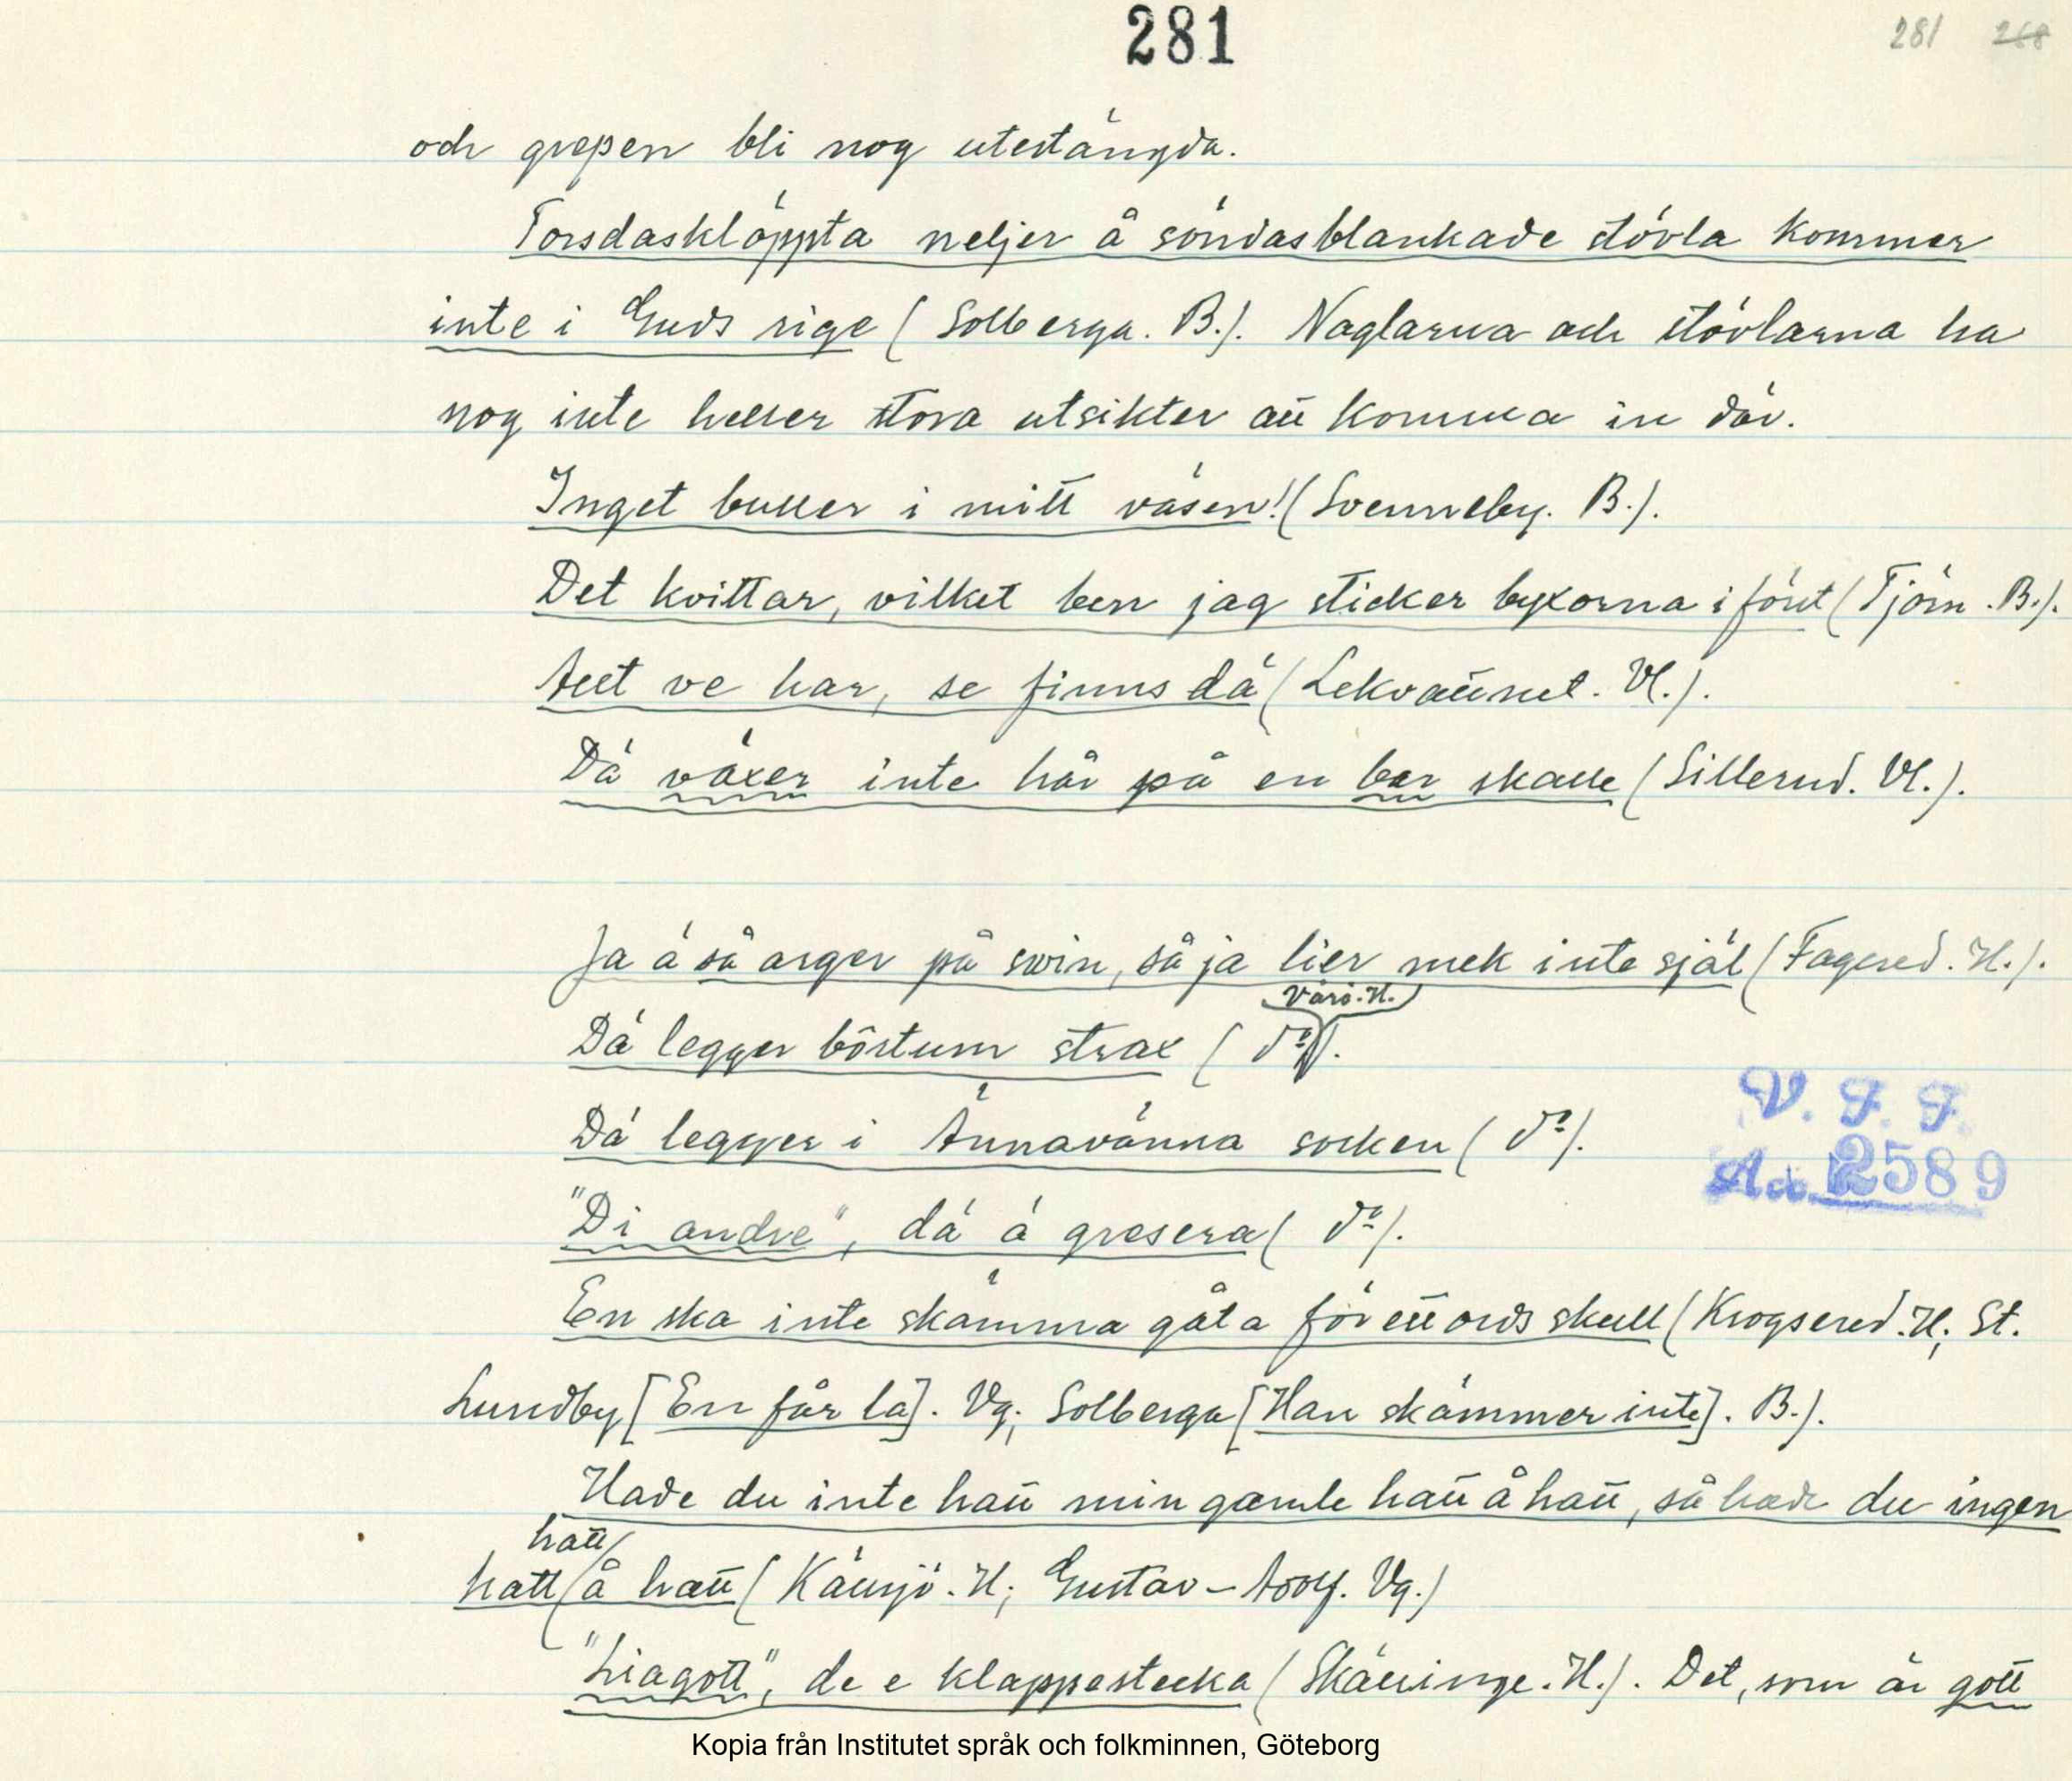 281
281 268
och grepen bli nog utestängda.
Torsdasklöppta neljer å söndasblankade stövla kommer
inte i Guds rige (Solberga. B.). Naglarna och stövlarna ha
nog inte heller stora utsikter att komma in där.
Inget buller i mitt väsen! (Svenneby. B.).
Det kvittar, vilket ben jag sticker byxorna i först (Tjörn. B.).
Allt ve har, se finns dä (Lekvattnet. Vl.).
Dä växer inte hår på en bar skalle (Sillerud. Vl.).
Ja ä så arger på swin, så ja lier mek inte själ (Fagered. H.).
Värö. H.
Dä legger bôstum strax ( do ).
Dä legger i Ännavänna socken ( do ).
"Di andre", dä ä gresera ( do ).
En ska inte skämma gåta för ett ords skull (Krogsered. H; St.
Lundby [En får la]. Vg; Solberga [Han skämmer inte]. B.).
Hade du inte hatt min gamle hatt å hatt, så hade du ingen
hatt
hatt å hatt (Känsjö. H; Gustav-Adolf. Vg.)
"Liagott", de e klappestecka (Skällinge. H.). Det, som är gott
V. F. F.
Acc. 2589
Kopia från Institutet språk och folkminnen, Göteborg